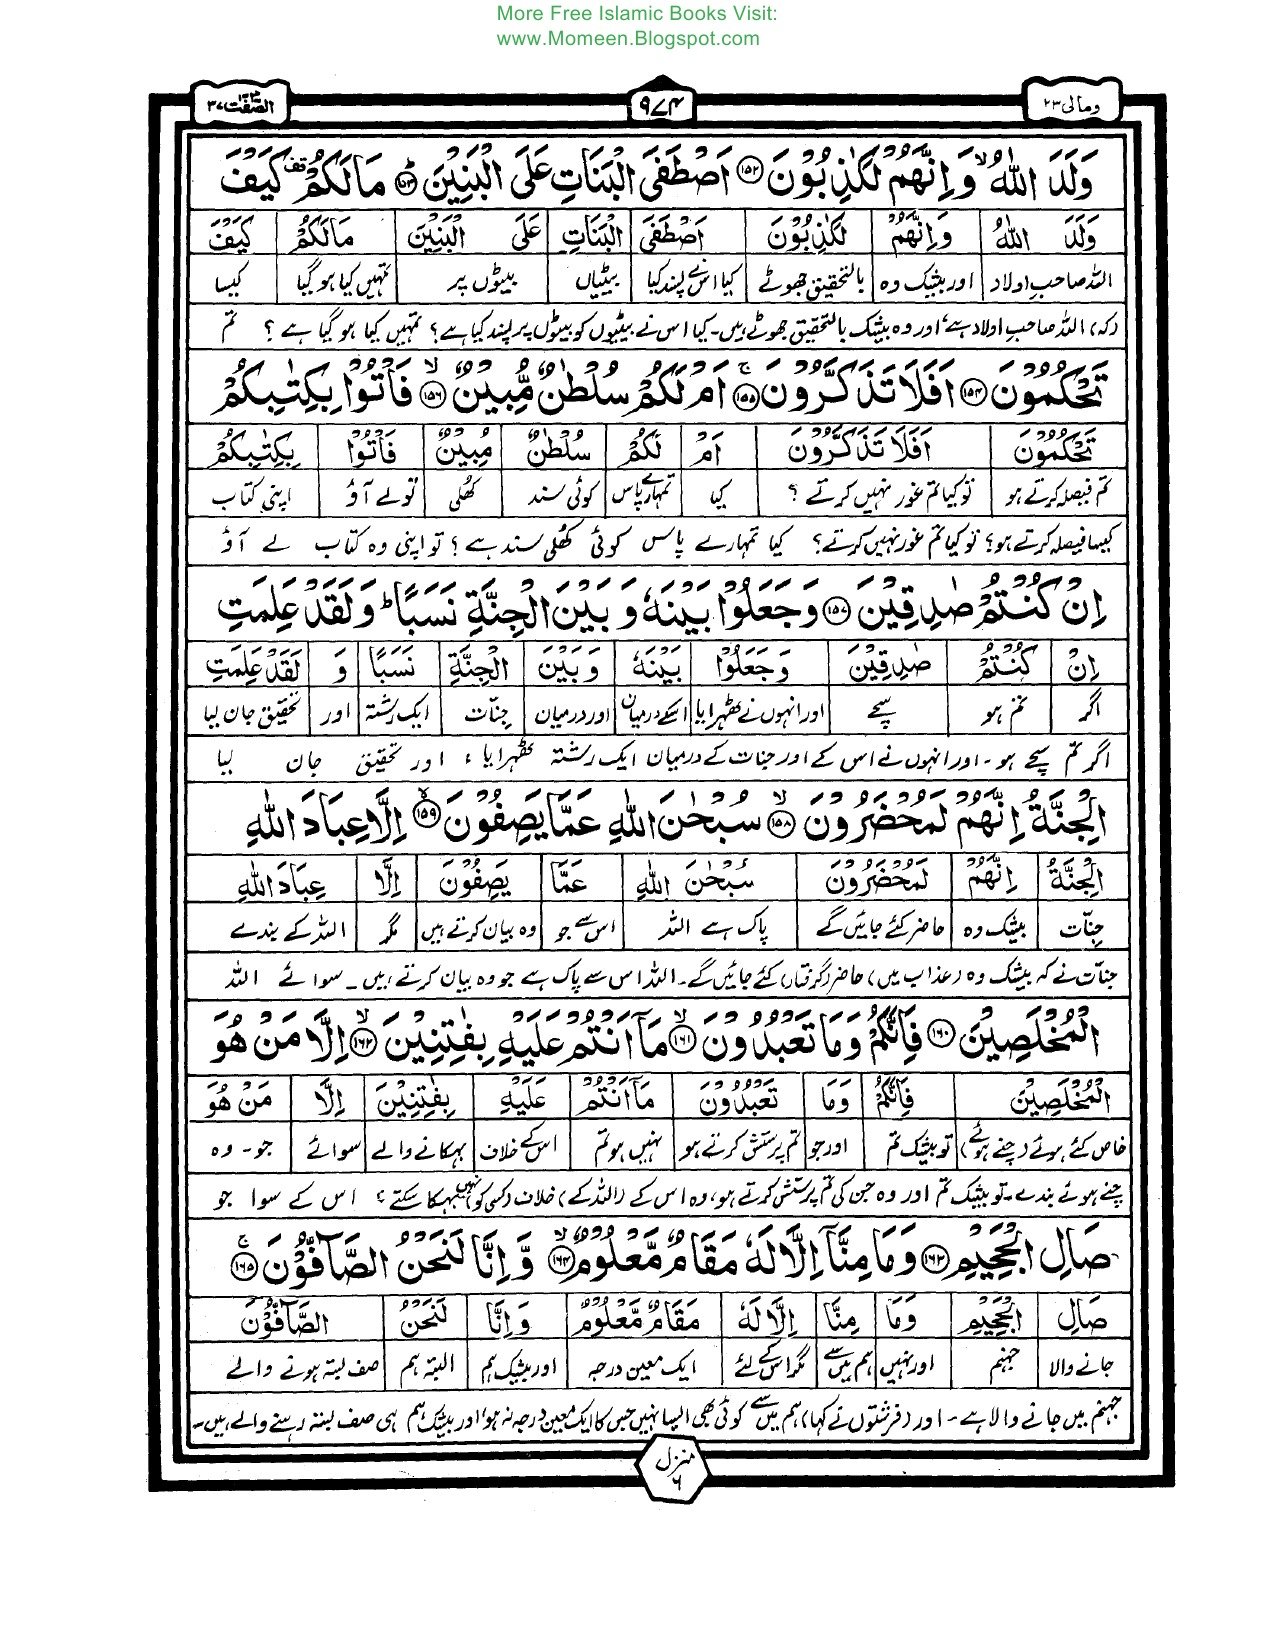 More Free Islamic Books Visit:
www.Momeen.Blogspot.com
ومالی ۲۳
۹۷۴
الصّٰفّٰت ۳۷
وَلَدَ اللّٰهُ ۙ وَاِنَّهُمْ لَكٰذِبُوْنَ ﴿۱۵۲﴾ اَصْطَفَى الْبَنَاتِ عَلَى الْبَنِيْنَ ﴿۱۵۳﴾ مَالَكُمْ كَيْفَ
وَلَدَ | اللّٰهُ | وَاِنَّهُمْ | لَكٰذِبُوْنَ | اَصْطَفَى | الْبَنَاتِ | عَلَى الْبَنِيْنَ | مَالَكُمْ | كَيْفَ
اللہ صاحبِ اولاد | اور بیشک وہ | بالتحقیق جھوٹے | کیا اس نے پسند کیا | بیٹیاں | بیٹوں پر | تمہیں کیا ہو گیا | کیسا
(کہ) اللہ صاحبِ اولاد ہے، اور وہ بیشک بالتحقیق جھوٹے ہیں۔ کیا اس نے بیٹیوں کو بیٹوں پر پسند کیا ہے؟ تمہیں کیا ہو گیا ہے؟ تم
تَحْكُمُوْنَ ﴿۱۵۴﴾ اَفَلَا تَذَكَّرُوْنَ ﴿۱۵۵﴾ اَمْ لَكُمْ سُلْطٰنٌ مُّبِيْنٌ ﴿۱۵۶﴾ فَاْتُوْا بِكِتٰبِكُمْ
تَحْكُمُوْنَ | اَفَلَا تَذَكَّرُوْنَ | اَمْ | لَكُمْ | سُلْطٰنٌ | مُبِيْنٌ | فَاْتُوْا | بِكِتٰبِكُمْ
تم فیصلہ کرتے ہو | تو کیا تم غور نہیں کرتے ؟ | کیا | تمہارے پاس | کوئی سند | کھُلی | تو لے آؤ | اپنی کتاب
کیسا فیصلہ کرتے ہو؟ تو کیا تم غور نہیں کرتے؟ کیا تمہارے پاس کوئی کھُلی سند ہے؟ تو اپنی وہ کتاب لے آؤ
اِنْ كُنْتُمْ صٰدِقِيْنَ ﴿۱۵۷﴾ وَجَعَلُوْا بَيْنَهٗ وَبَيْنَ الْجِنَّةِ نَسَبًا ؕ وَلَقَدْ عَلِمَتِ
اِنْ | كُنْتُمْ | صٰدِقِيْنَ | وَجَعَلُوْا | بَيْنَهٗ | وَبَيْنَ | الْجِنَّةِ | نَسَبًا | وَ | لَقَدْ عَلِمَتِ
اگر | تم ہو | سچے | اور انہوں نے ٹھہرایا | اسکے درمیان | اور درمیان | جنّات | ایک رشتہ | اور | تحقیق جان لیا
اگر تم سچے ہو۔ اور انہوں نے اس کے اور جنات کے درمیان ایک رشتہ ٹھہرایا، اور تحقیق جان لیا
الْجِنَّةُ اِنَّهُمْ لَمُحْضَرُوْنَ ﴿۱۵۸﴾ سُبْحٰنَ اللّٰهِ عَمَّا يَصِفُوْنَ ﴿۱۵۹﴾ اِلَّا عِبَادَ اللّٰهِ
الْجِنَّةُ | اِنَّهُمْ | لَمُحْضَرُوْنَ | سُبْحٰنَ اللّٰهِ | عَمَّا | يَصِفُوْنَ | اِلَّا | عِبَادَ اللّٰهِ
جنّات | بیشک وہ | حاضر کئے جائیں گے | پاک ہے اللہ | اس سے جو | وہ بیان کرتے ہیں | مگر | اللہ کے بندے
جنّات نے کہ بیشک وہ (عذاب میں) حاضر (گرفتار) کئے جائیں گے۔ اللہ اس سے پاک ہے جو وہ بیان کرتے ہیں۔ سوائے اللہ
الْمُخْلَصِيْنَ ﴿۱۶۰﴾ فَاِنَّكُمْ وَمَا تَعْبُدُوْنَ ﴿۱۶۱﴾ مَآ اَنْتُمْ عَلَيْهِ بِفٰتِنِيْنَ ﴿۱۶۲﴾ اِلَّا مَنْ هُوَ
الْمُخْلَصِيْنَ | فَاِنَّكُمْ | وَمَا | تَعْبُدُوْنَ | مَآ اَنْتُمْ | عَلَيْهِ | بِفٰتِنِيْنَ | اِلَّا | مَنْ هُوَ
خاص کئے ہوئے (چنے ہوئے) | تو بیشک تم | اور جو | تم پرستش کرتے ہو | نہیں ہو تم | اس کے خلاف | بہکانے والے | سوائے | جو۔ وہ
چنے ہوئے بندے۔ تو بیشک تم اور وہ جن کی تم پرستش کرتے ہو، وہ اس کے (اللہ کے) خلاف (کسی کو) نہیں بہکا سکتے؟ اس کے سوا جو
صَالِ الْجَحِيْمِ ﴿۱۶۳﴾ وَمَا مِنَّآ اِلَّا لَهٗ مَقَامٌ مَّعْلُوْمٌ ﴿۱۶۴﴾ وَّاِنَّا لَنَحْنُ الصَّآفُّوْنَ ﴿۱۶۵﴾
صَالِ | الْجَحِيْمِ | وَمَا | مِنَّا | اِلَّا لَهٗ | مَقَامٌ مَّعْلُوْمٌ | وَاِنَّا | لَنَحْنُ | الصَّآفُّوْنَ
جانے والا | جہنم | اور نہیں | ہم میں سے | مگر اس کے لئے | ایک معین درجہ | اور بیشک ہم | البتہ ہم | صف بستہ ہونے والے
جہنم میں جانے والا ہے۔ اور (فرشتوں نے کہا) ہم میں سے کوئی بھی ایسا نہیں جس کا ایک معین درجہ نہ ہو، اور بیشک ہم ہی صف بستہ رہنے والے ہیں۔
منزل ۶